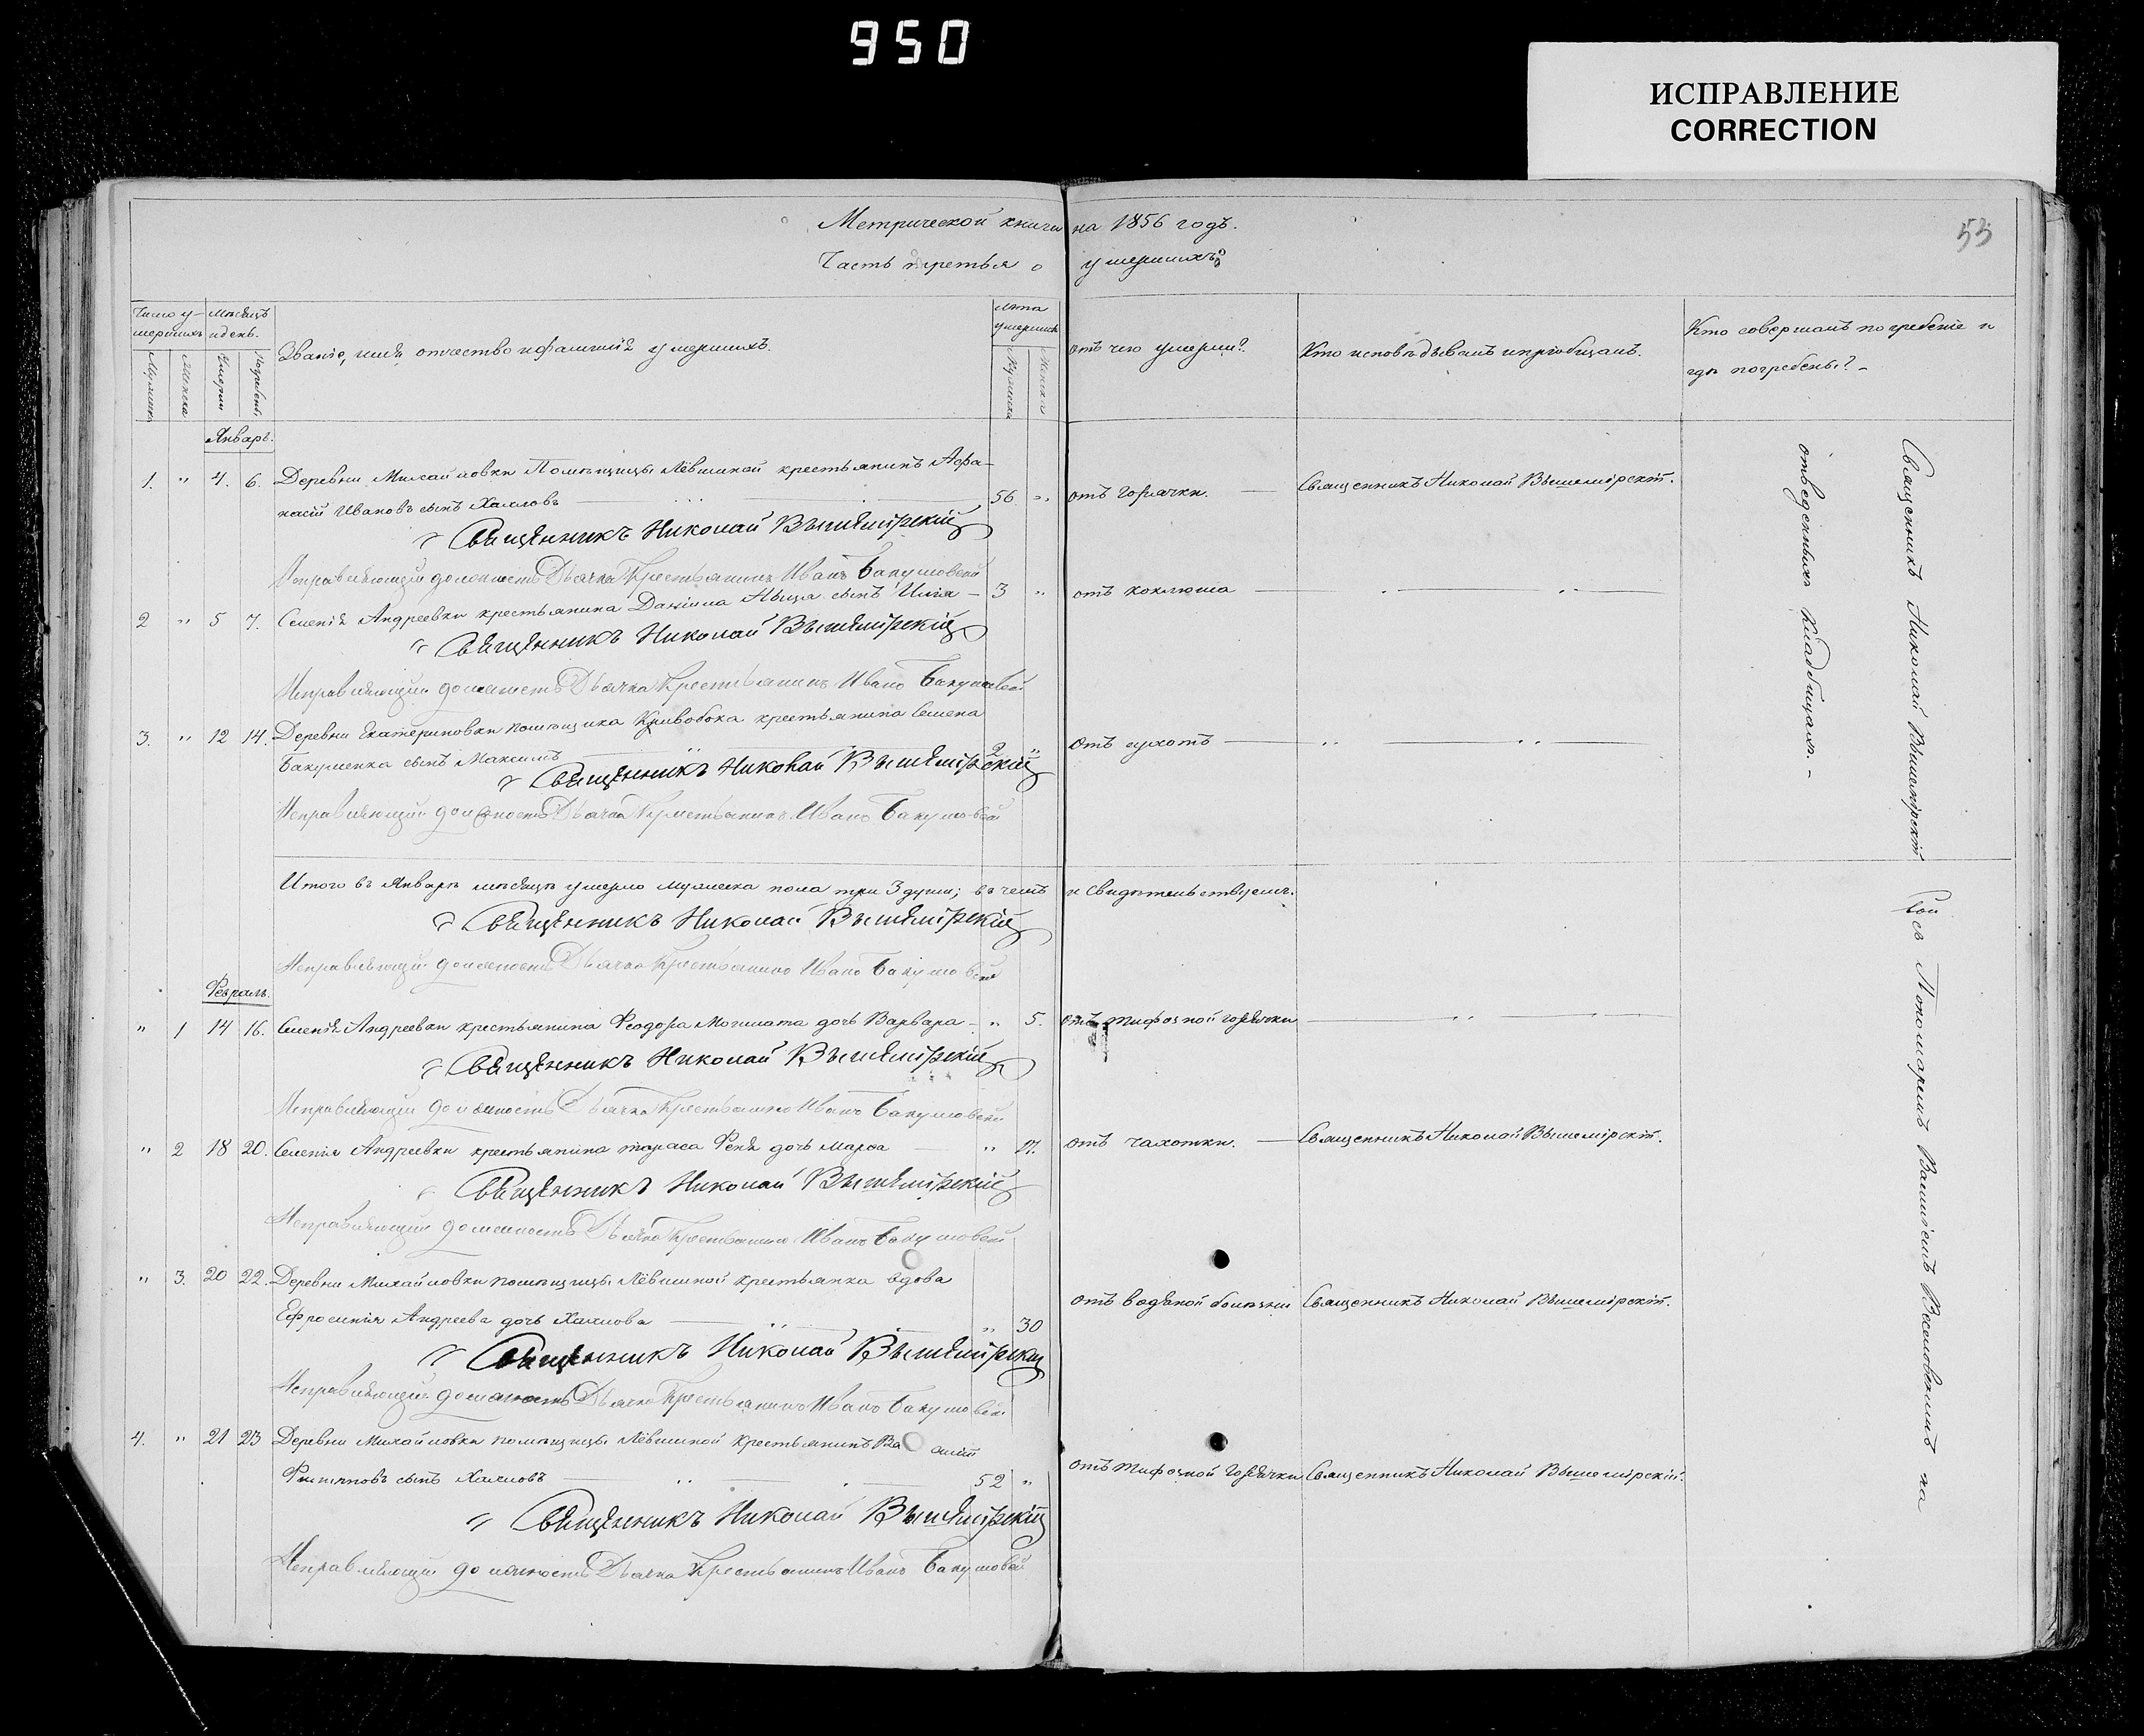 950
ИСПРАВЛЕНИЕ
CORRECTION
53
Метрической книги на 1856 годъ.
Часть третья о умершихъ
Число умершихъ
Мѣсяцъ и день.
Званіе, имя отчество и фамилія умершихъ.
Лѣта умершихъ
отъ чего умерли?
Кто исповѣдывалъ и пріобщалъ.
Кто совершалъ погребеніе и
гдѣ погребены?
Мужеска
Женска
Умерли
Погребены
Мужска
Женска
Январь.
1. " 4. 6. Деревни Михайловки Помѣщицы Лёвшиной крестьянинъ Афа-
насій Ивановъ сынъ Хахловъ 56 " отъ горячки. Священникъ Николай Вышемірскій.
Священникъ Николай Вышемірскій
Исправляющій должность Дьячка Крестьянинъ Иванъ Бакумовскій
2 " 5 7. Селенія Андреевки крестьянина Даніила сынъ Илія 3 " отъ коклюша
Священникъ Николай Вышемірскій
Исправляющій должность Дьячка Крестьянинъ Иванъ Бакумовскій
3. " 12 14. Деревни Екатериновки помѣщика Кривобока крестьянина Семена
Бакуменка сынъ Максимъ 2 " отъ сухотъ
Священникъ Николай Вышемірскій
Исправляющій должность Дьячка Крестьянинъ Иванъ Бакумовскій
Итого въ Январѣ мѣсяцѣ умерло мужеска пола три 3 души; въ чемъ и свидѣтельствуемъ.
Священникъ Николай Вышемірскій
Исправляющій должность Дьячка Крестьянинъ Иванъ Бакумовскій
Февраль.
" 1 14 16. Селенія Андреевки крестьянина Феодора Могилата дочь Варвара " 5. отъ тифозной горячки
Священникъ Николай Вышемірскій
Исправляющій должность Дьячка Крестьянинъ Иванъ Бакумовскій
" 2 18 20. Селенія Андреевки крестьянина Тараса дочь Марѳа " 17. отъ чахотки. Священникъ Николай Вышемірскій.
Священникъ Николай Вышемірскій
Исправляющій должность Дьячка Крестьянинъ Иванъ Бакумовскій
" 3. 20 22. Деревни Михайловки помѣщицы Лёвшиной крестьянка вдова
Ефросинія Андреева дочь Хахлова " 30 отъ водяной болѣзни Священникъ Николай Вышемірскій.
Священникъ Николай Вышемірскій
Исправляющій должность Дьячка Крестьянинъ Иванъ Бакумовскій
4. " 21 23 Деревни Михайловки помѣщицы Лёвшиной крестьянинъ Ва силій
Филиповъ сынъ Хахловъ 52 " отъ тифозной горячки Священникъ Николай Вышемірскій.
Священникъ Николай Вышемірскій
Исправляющій должность Дьячка Крестьянинъ Иванъ Бакумовскій
Священникъ Николай Вышемірскій съ Пономаремъ Василіемъ Веселовскимъ на
отведенныхъ кладбищахъ.